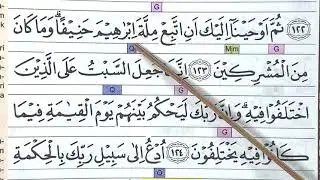 G G
١٢٢ ثُمَّ اَوْحَيْنَآ اِلَيْكَ اَنِ اتَّبِعْ مِلَّةَ اِبْرٰهِيْمَ حَنِيْفًاۗ وَمَا كَانَ
Q Mjm G
مِنَ الْمُشْرِكِيْنَ ١٢٣ اِنَّمَا جُعِلَ السَّبْتُ عَلَى الَّذِيْنَ
Q G
اخْتَلَفُوْا فِيْهِۗ وَاِنَّ رَبَّكَ لَيَحْكُمُ بَيْنَهُمْ يَوْمَ الْقِيٰمَةِ فِيْمَا
Q G
كَانُوْا فِيْهِ يَخْتَلِفُوْنَ ١٢٤ اُدْعُ اِلٰى سَبِيْلِ رَبِّكَ بِالْحِكْمَةِ